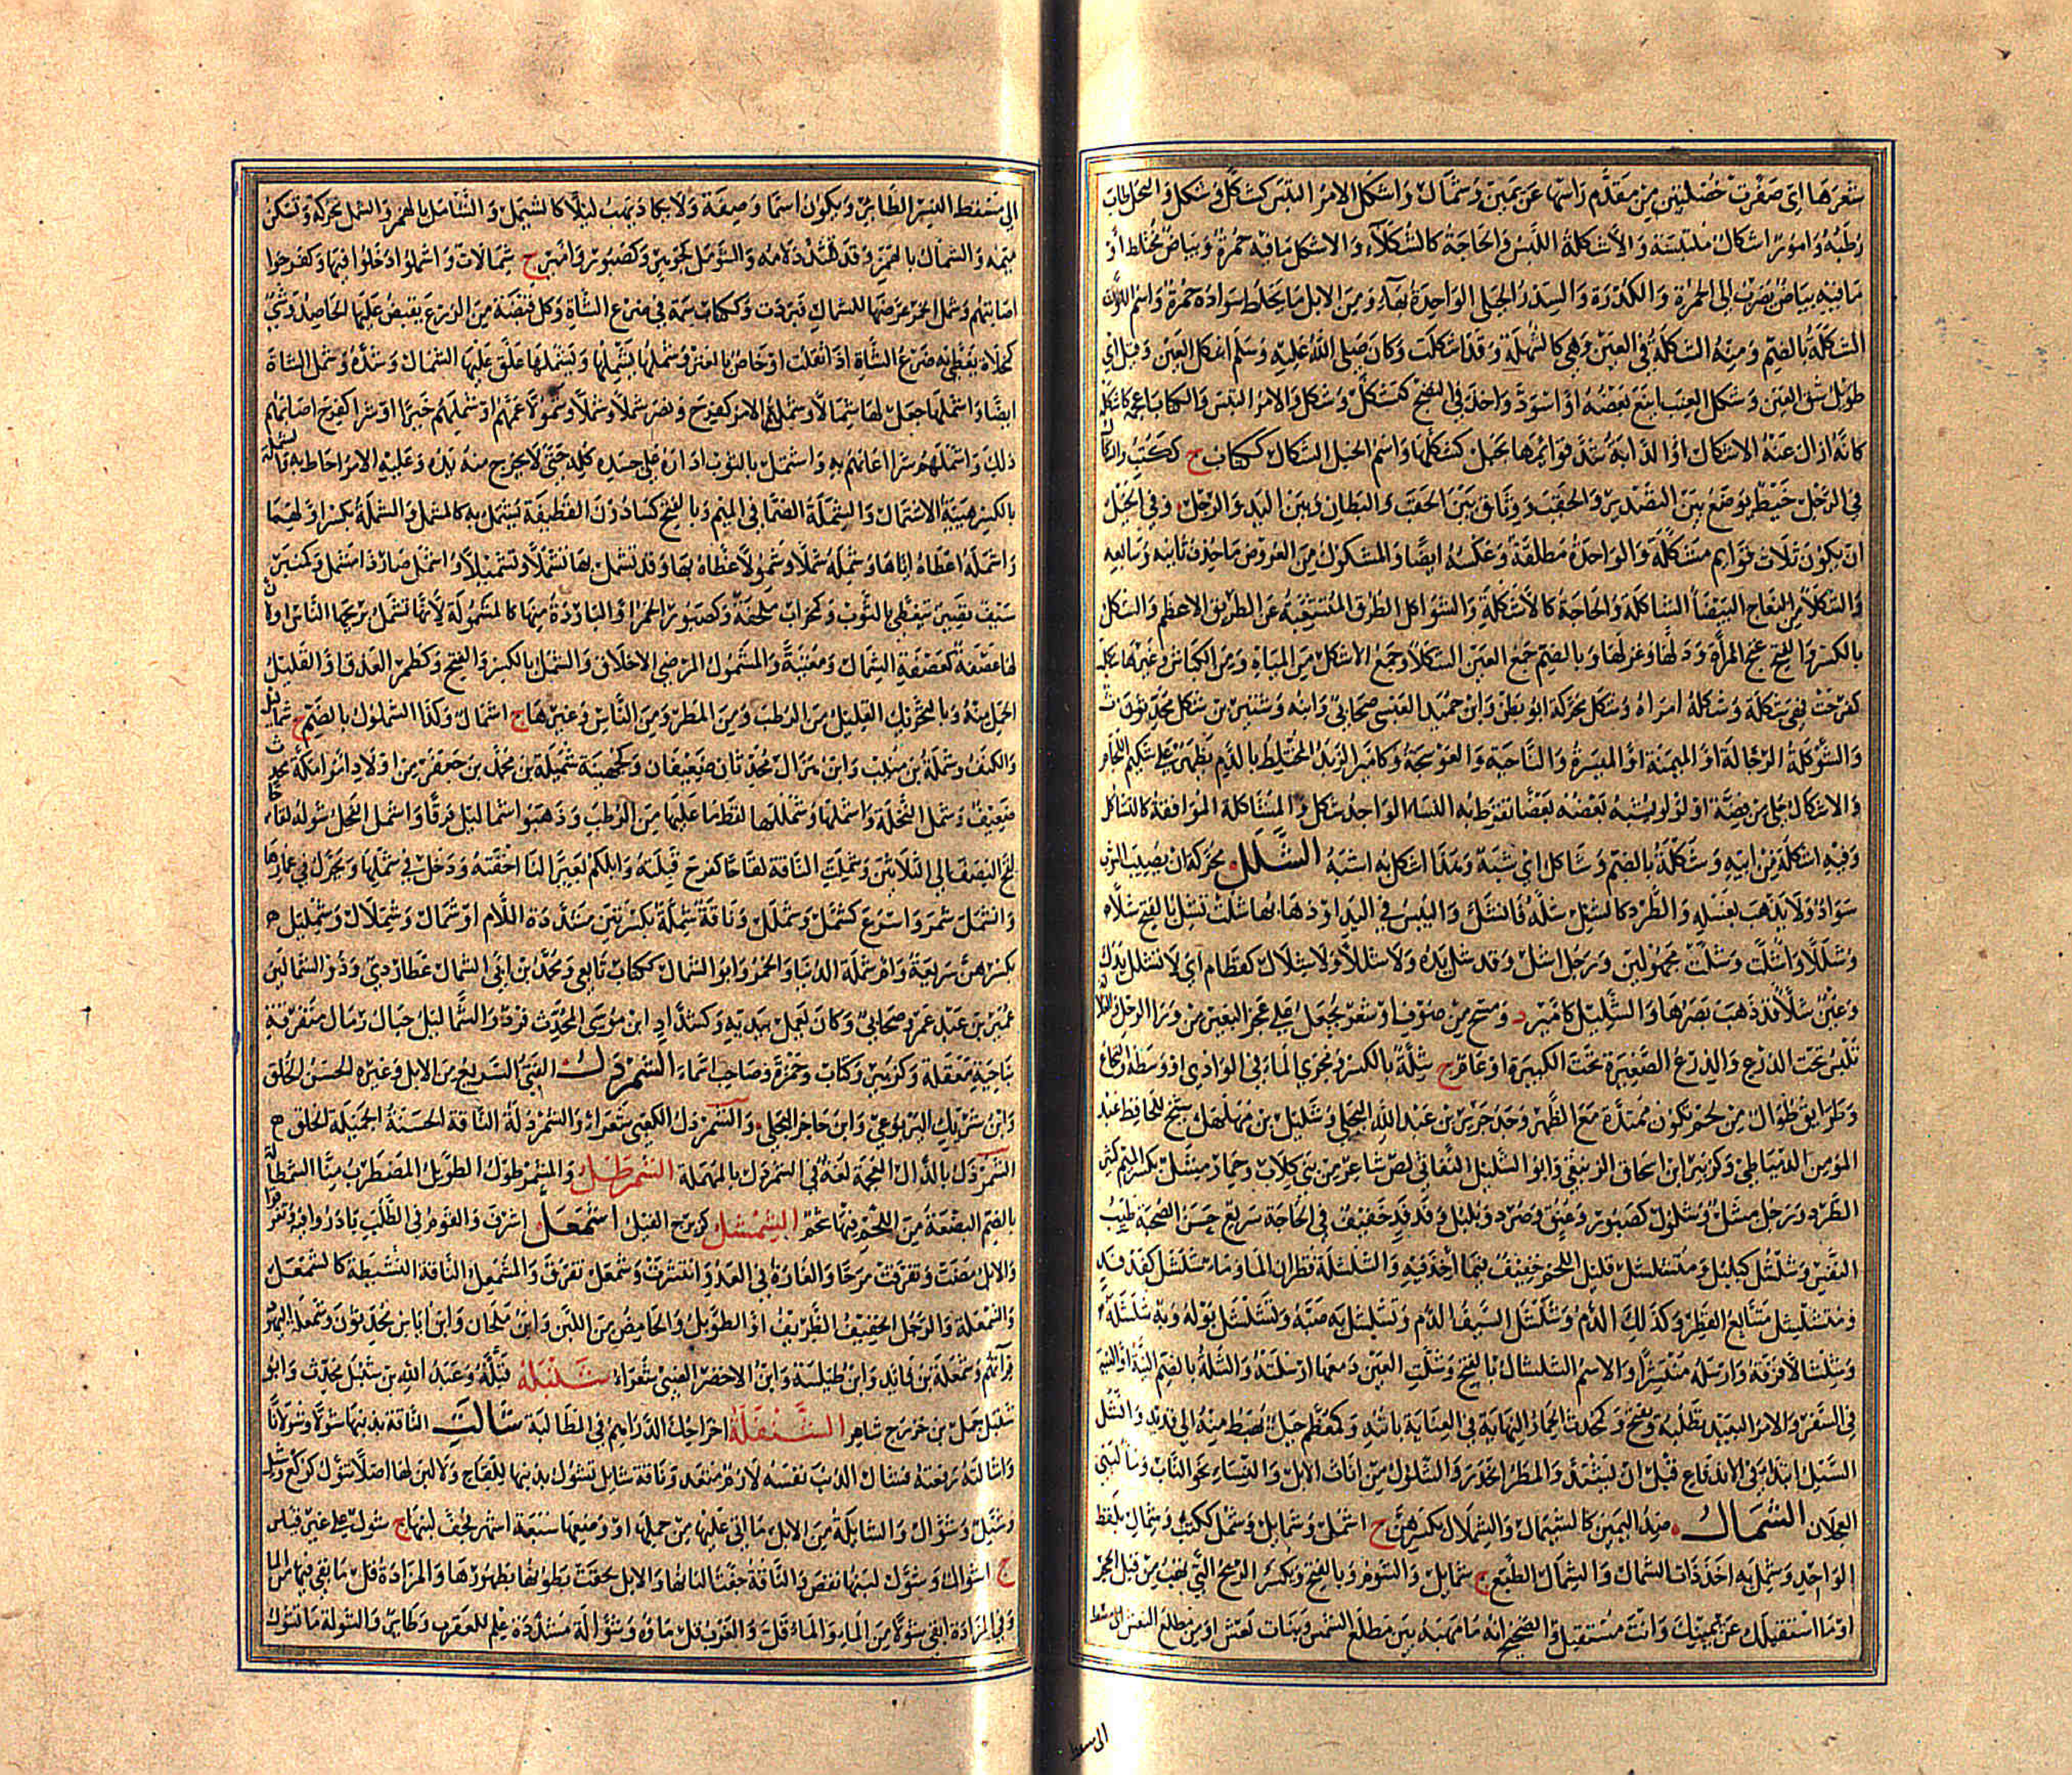 شعرها اى ضفرت خصلتين من مقدم راسها عن يمين وشمال واشكل الامر التبس كشكل وشكل والنخل طاب
رطبه وامور اشكال ملتبسة والاشكلة اللبس والحاجة كالشكلاء والاشكل مافيه حمرة وبياض مختلط او
مافيه بياض يضرب الى الحمرة والكدرة والسدر الجبلى الواحدة بهاء ومن الابل ما يخلط سواده حمرة واسم اللون
الشكلة بالضم ومنه الشكلة فى العين وهى كالشهلة وقد اشكلت وكان صلى الله عليه وسلم اشكل العين وقيل اى
طويل شق العين وشكل العنب اينع بعضه او اسود واخذ فى النضج كتشكل وشكل والامر التبس والكتاب اعجمه كاشكله
كانه ازال عنه الاشكال والدابة شد قوائمها بحبل كشكلها واسم الحبل الشكال ككتاب ج ككتب والشكال
فى الرحل خيط يوضع بين التصدير والحقب ووثاق بين الحقب والبطان وبين اليد والرجل وفى الخيل
ان يكون ثلاث قوايم مشكلة والواحدة مطلقة وعكسه ايضا والمشكول من العروض ما حذف ثانيه وسابعه
والشكلاء من النعاج البيضاء الشاكلة والحاجة كالاشكلة والشواكل الطرق المتشعبة عن الطريق الاعظم والشكل
بالكسر والفتح غنج المراة ودلها وغزلها وبالضم جمع العين الشكلاء وجمع الاشكل من المياه ومن الكباش وغيرها شكلت
كفرحت فهى شكلة وشكلة امراة وشكل محركة ابو بطن وابن حميد العبسى صحابى وابنه وشتير بن شكل محدثون
والشوكلة الرجالة او الميمنة او الميسرة والناحية والعوسجة وكامير الزبد المختلط بالدم يظهر على شكيم اللجام
والاشكال حلى من فضة او لؤلؤ يشبه بعضه بعضا تقرط به النساء الواحد شكل والمشاكلة الموافقة كالتشاكل
وفيه اشكلة من ابيه وشكلة بالضم وشاكل اى شبه وهذا اشكل به اشبه الشلل محركة ان يصيب الثوب
سواد ولا يذهب بغسله والطرد كالشل شله فانشل واليبس فى اليد او ذهابها شلت تشل بالفتح شلا
وشللا واشلت وشلت مجهولين ورجل اشل وقد شل يده ولا شللا ولا شلال كقطام اى لا تشلل يدك
وعين شلاء قد ذهب بصرها والشليل كامير د ومسح من صوف او شعر يجعل على عجز البعير من وراء الرحل والغلالة
تلبس تحت الدرع والدرع الصغيرة تحت الكبيرة او عام ج شلة بالكسر ومجرى الماء فى الوادى او وسطه والنخاع
وطرايق طوال من لحم تكون ممتدة مع الظهر وجد جرير بن عبد الله البجلى وشليل بن مهلهل شيخ للحافظ عبد
المؤمن الدمياطى وكزبير ابن اسحاق الزنبقى وابو الشليل النفاثى لص شاعر من بنى كلاب وحمار مشل بكسر الميم كثير
الطرد ورجل مشل وشلول كصبور وعنق وصرد وبلبل وفدفد خفيف فى الحاجة سريع حسن الصحبة طيب
النفس وشلشل كبلبل ومتشلشل قليل اللحم خفيف فيما اخذ فيه والشلشلة قطران الماء وماء شلشل كفدفد
ومتشلشل متتابع القطر وكذلك الدم وشلشل السيف الدم وتشلشل به صبه وتشلشل بوله وبه شلشلة
وشلشالا فرقه وارسله منتشرا والاسم الشلشال بالفتح وشلت العين دمعها ارسلته والشلة بالضم النية او النية
فى السفر والامر البعيد تطلبه ويفتح وكمحدث الحمار النهاية فى العناية باتنه وكمعظم جبل يهبط منه الى قديد وانشل
السيل ابتدا فى الاندفاع قبل ان يشتد والمطر انحدر والشلول من اناث الابل والنساء نحو الناب وماء لبنى
العجلان الشمال ضد اليمين كالشيمال والشملال بكسرهن ج اشمل وشمايل وشمل ككتب وشمال بلفظ
الواحد وشمل به اخذ ذات الشمال والشمال الطبع ج شمايل والشؤم وبالفتح ويكسر الريح التى تهب من قبل الحجر
او ما استقبلك عن يمينك وانت مستقبل والصحيح انه ما مهبه بين مطلع الشمس وبنات نعش او من مطلع النعش الى مسقط
الى مسقط
الى مسقط النسر الطاير ويكون اسما وصفة ولا يكاد تهب ليلا كالشيمل والشامل بالهمز والشمل محركة وتسكن
ميمه والشمال بالهمز وقد تشدد لامه والشومل كجوهر وكصبور وامير ج شمالات واشملوا دخلوا فيها وكفرحوا
اصابتهم وشمل الخمر عرضها للشمال فبردت وككتاب سمة فى ضرع الشاة وكل قبضة من الزرع يقبض عليها الحاصد وشىء
كمخلاة يغطى به ضرع الشاة اذا ثقلت او خاص بالعنز وشملها يشملها ويشملها علق عليها الشمال وشده وشمل الشاة
ايضا واشملها جعل لها شمالا وشملهم الامر كفرح ونصر شملا وشملا وشمولا عمهم او شملهم خيرا او شرا كفرح اصابهم
ذلك واشملهم شرا اعمهم به واشتمل بالثوب اداره على جسده كله حتى لا يخرج منه يده وعليه الامر احاط به والشملة
بالكسر هيئة الاشتمال والشملة الصماء فى الميم وبالفتح كساء دون القطيفة يشتمل به كالمشمل والمشملة بكسر اولهما
واشمله اعطاه اياها وشمله شملا وشمولا غطاه بها وقد تشمل بها تشملا وتشميلا واشمل صار ذا مشمل وكمنبر
سيف قصير يتغطى بالثوب وكمحراب ملحفة وكصبور الخمر او الباردة منها كالمشمولة لانها تشمل بريحها الناس او لان
لها عصفة كعصفة الشمال ومغنية والمشمول المرضى الاخلاق والشمل بالكسر والفتح وكطمر العذق او القليل
الحمل منه وبالتحريك القليل من الرطب ومن المطر ومن الناس وغيرها ج اشمال وكذا الشملول بالضم ج شماليل
والكنف وشملة بن منيب وابن هزال محدثان ضعيفان وكجهينة شميلة بن محمد بن جعفر من اولاد امراء مكة محدث
ضعيف وشمل النخلة واشملها وشمللها لقط ما عليها من الرطب وذهبوا شماليل فرقا واشمل الفحل شوله لقاحا
لقح النصف الى الثلثين وشملت الناقة لقاحا كفرح قبلته وابلكم لعيرا لنا اخفته ودخل فى شملها ويحرك فى غمارها
وانشمل شمر واسرع كشمل وشملل وناقة شملة بكسرتين مشددة اللام وشمال وشملال وشمليل
بكسرهن سريعة وام شملة الدنيا والخمر وابو الشمال ككتاب تابعى ومحمد بن ابى الشمال عطاردى وذو الشمالين
عمير بن عبد عمرو صحابى وكان يعمل بيديه وكشداد ابن موسى المحدث فرد والشماليل حبال رمال متفرقة
بناحية معقلة وكزبير وكتاب وحمزة وصاحب اسماء الشمردل الفتى السريع من الابل وغيره الحسن الخلق
وابن شريك اليربوعى وابن حاجز البجلى والشمردل الكعبى شعراء والشمردلة الناقة الحسنة الجميلة الخلق
الشمرذل بالذال المعجمة لغة فى الشمردل بالمهملة الشمرطل والشمرطول الطويل المضطرب منا الشمطالة
بالضم البضعة من اللحم فيها شحم الشمشل كزبرج الفيل اشمعل اشرف والقوم فى الطلب بادروا فيه وتفرقوا
والابل مضت وتفرقت مرحا والغارة فى العدو انتشرت وشمعل تفرق والمشمعل الناقة النشيطة كالشمعل
والشمعلة والرجل الخفيف الظريف او الطويل والحامض من اللبن وابن ملحان وابن اياس محدثون وشمعلة اليهود
قراءتهم وشمعلة بن فائد وابن طيسلة وابن الاخضر الضبى شعراء شنبله قبله وعبد الله بن شنبل محدث وابو
شنبل حمل بن خزرج شاعر الشنفلة اخراجك الدراهم فى المطالبة شالت الناقة بذنبها شولا وشولانا
واشالته رفعته فشال الذنب نفسه لازم متعد وناقة شايل تشول بذنبها للقاح ولا لبن لها اصلا ج شول كركع وشيل
وشيل وشوال والشايلة من الابل ما اتى عليها من حملها او وضعها سبعة اشهر فجف لبنها ج شول على غير قياس
ج اشوال وشول لبنها نقص والناقة جفت البانها والابل لحقت بطونها بظهورها والمزادة قل ما بقى فيها من الماء
وفى المزادة ابقى شولا من الماء والماء قل والغرب قل ماؤه وشوالة مشددة علم للعقرب وطاير والشولة ما تشول